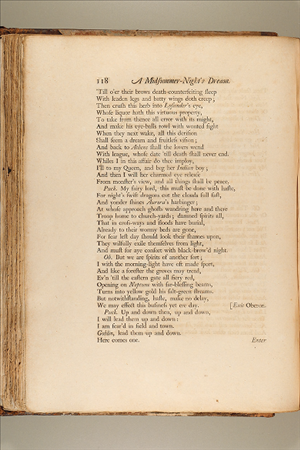 118 A Midsummer-Night's Dream.
'Till o'er their brows death-counterfeiting sleep
With leaden legs and batty wings doth creep;
Then crush this herb into Lysander's eye,
Whose liquor hath this virtuous property,
To take from thence all error with its might,
And make his eye-balls rowl with wonted sight.
When they next wake, all this derision
Shall seem a dream and fruitless vision;
And back to Athens shall the lovers wend
With league, whose date 'till death shall never end.
Whiles I in this affair do thee imploy,
I'll to my Queen, and beg her Indian boy;
And then I will her charmed eye release
From monster's view, and all things shall be peace.
Puck. My fairy lord, this must be done with haste,
For night's swift dragons cut the clouds full fast,
And yonder shines Aurora's harbinger;
At whose approach ghosts wandring here and there
Troop home to church-yards; damned spirits all,
That in cross-ways and floods have burial,
Already to their wormy beds are gone,
For fear lest day should look their shames upon,
They wilfully exile themselves from light,
And must for aye consort with black-brow'd night.
Ob. But we are spirits of another sort;
I with the morning-light have oft made sport,
And like a forester the groves may tread,
Ev'n 'till the eastern gate all fiery red,
Opening on Neptune with far-blessing beams,
Turns into yellow gold his salt-green streams.
But notwithstanding, haste, make no delay,
We may effect this business yet ere day. [Exit Oberon.
Puck. Up and down, up and down,
I will lead them up and down:
I am fear'd in field and town.
Goblin, lead them up and down.
Here comes one. Enter